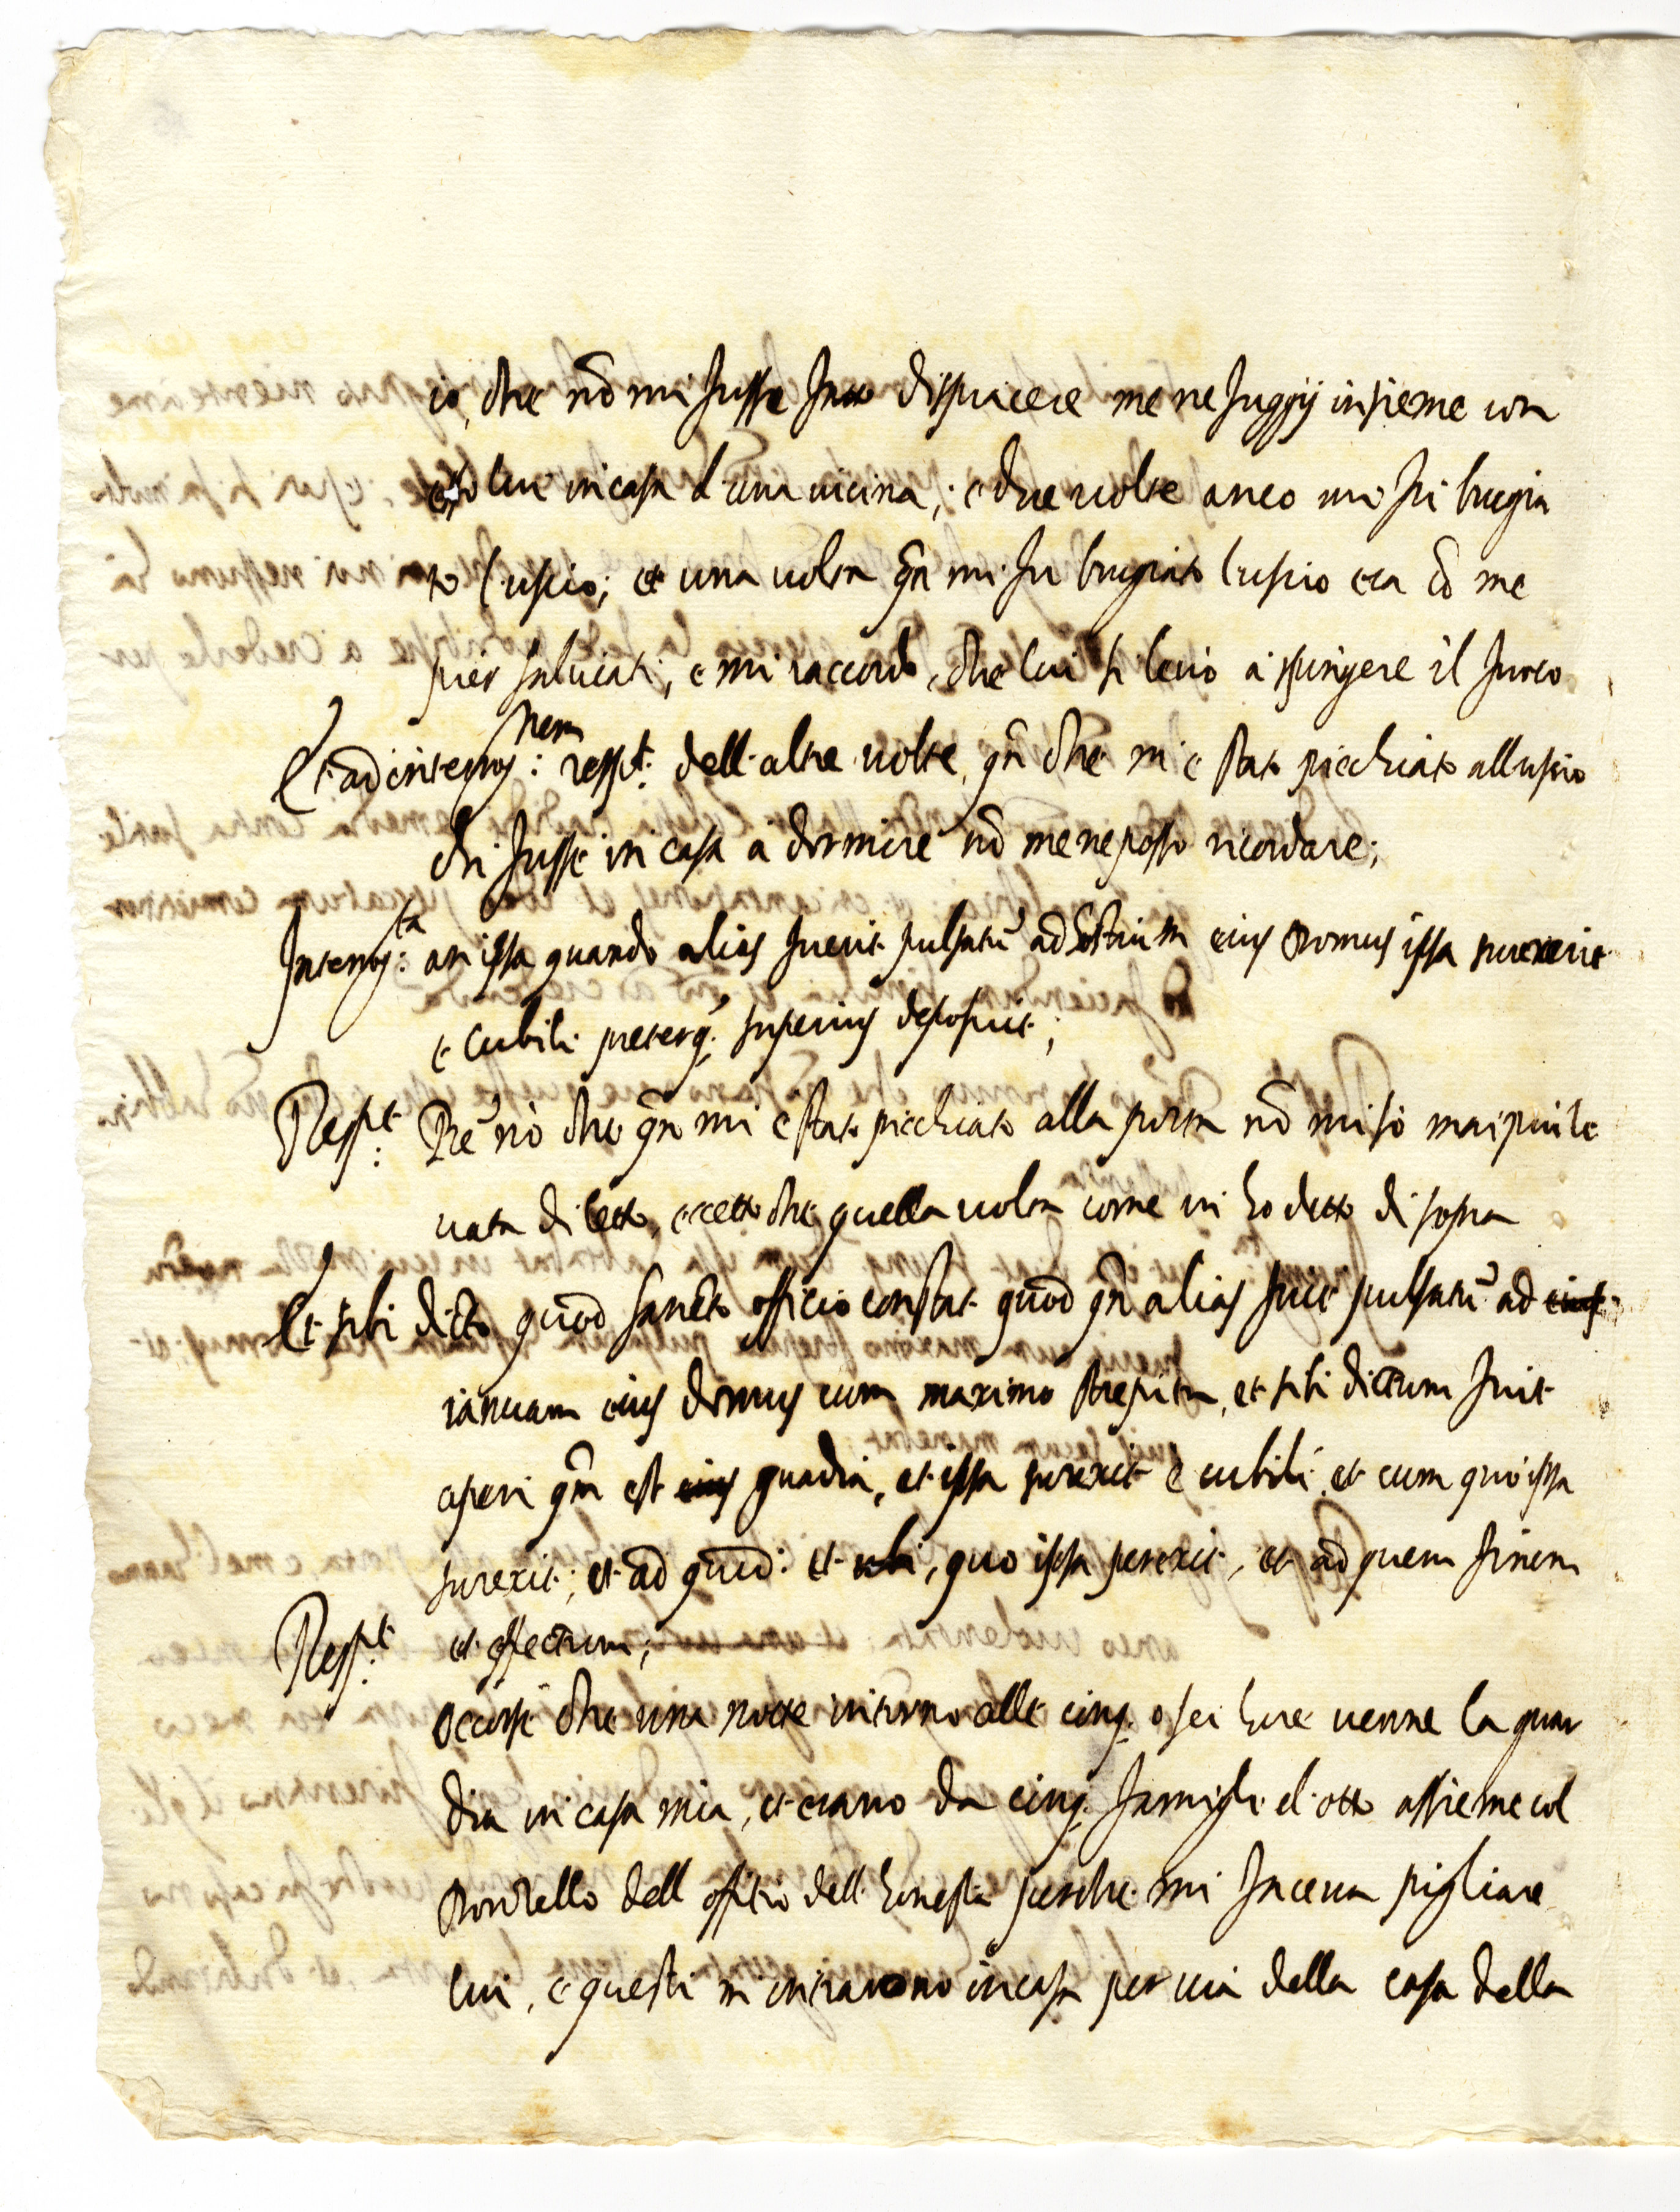 io, che nō mi fusse fatto dispiacere me ne fuggij insieme con
esso lui in casa d'una vicina; e due volte anco mi fu brugia
to l'uscio; et una volta qn̄ mi fu brugiato l'uscio era cō me
pier salviati; e mi raccordo, che lui si levò a spingere il fuoco
Et ad interrog:nem respt: dell'altre volte, qn̄ che m'è stato picchiato all'uscio
chi fusse in casa a dormire nō me ne posso ricordare;
Interrog:ta an ipsa quando alias fuerit pulsatū ad hostium eius domus ipsa surexerit
e cubili preterq; superius deposuit;
Resp:t P.re nò che qn̄ mi è stato picchiato alla porta nō mi sò mai più le
vata di letto, eccetto che quella volta come vi ho detto di sopra
Et sibi dicto quod sancto officio constat quod qn̄ alias fuit pulsatū ad eius
ianuam eius domus cum maximo strepitu, et sibi dictum fuit
aperi qm̄ est eius guardia, et ipsa surexit e cubili et cum quo ipsa
surexit; et ad quid: et ubi, quo ipsa perexit, et ad quem finem
et effectum;
Resp:t
Occorse che una notte intorno alle cinq; o sei hore venne la guar
dia in casa mia, et erano da cinq; famigli d'otto assieme col
Donzello dell'offitio dell'honestà perche mi faceva pigliare
lui, e questi m'intrarono in casa per via della casa della